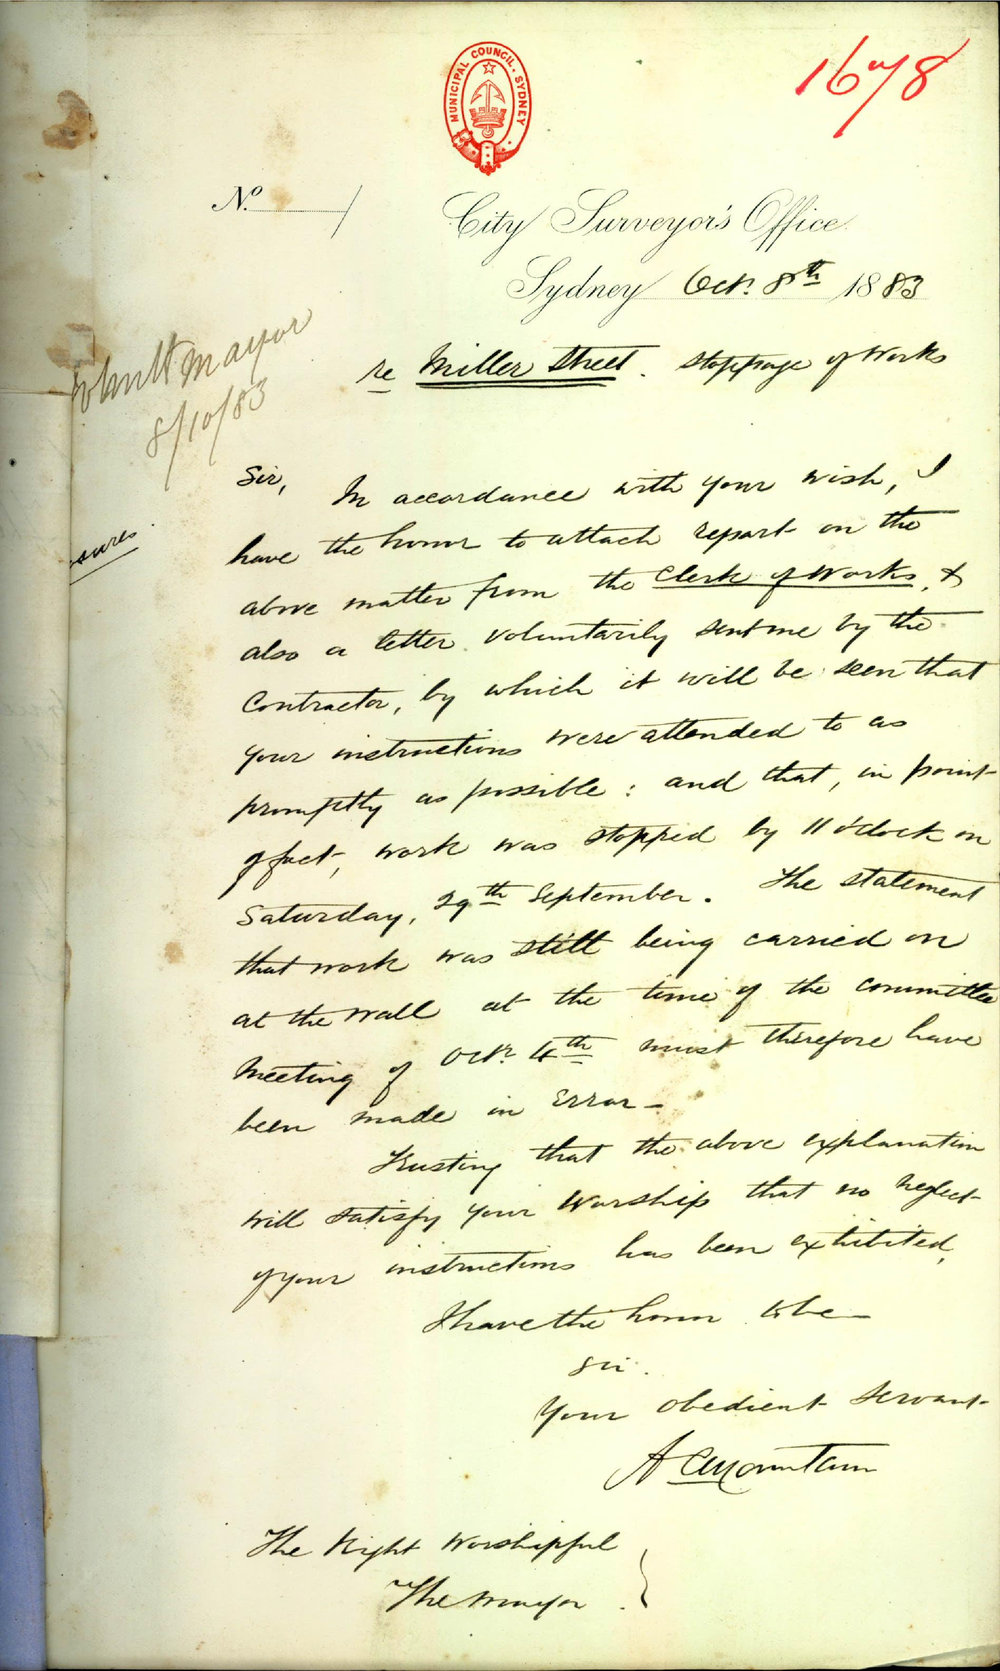 MUNICIPAL COUNCIL. SYDNEY
1678
No.
City Surveyor's Office
Sydney Oct. 8th 1883
Mayor
8/10/83
re Miller Street. Stoppage of Works
sures.
Sir,
In accordance with your wish, I
have the honor to attach report on the
above matter from the Clerk of Works, &
also a letter voluntarily sent me by the
Contractor, by which it will be seen that
your instructions were attended to as
promptly as possible: and that, in point
of fact, work was stopped by 11 o'clock on
Saturday, 29th September. The statement
that work was still being carried on
at the wall at the time of the committee
Meeting of Octr. 4th must therefore have
been made in Error—
Trusting that the above explanation
will satisfy your Worship that no neglect
of your instructions has been exhibited,
I have the honor to be—
Sir.
Your obedient Servant
A C Mountain
The Right Worshipful
The Mayor